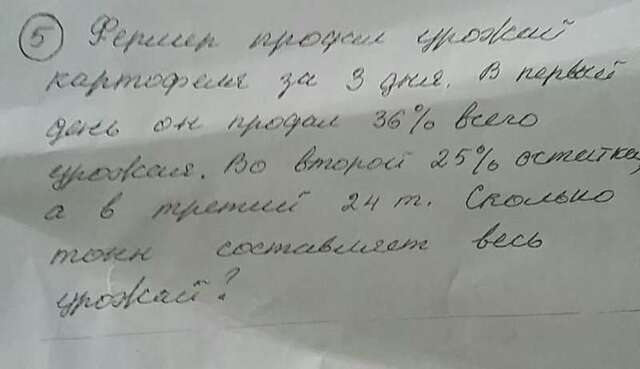 5 Фермер продал урожай
картофеля за 3 дня. В первый
день он продал 36% всего
урожая. Во второй 25% остатка,
а в третий 24 т. Сколько
тонн составляет весь
урожай?